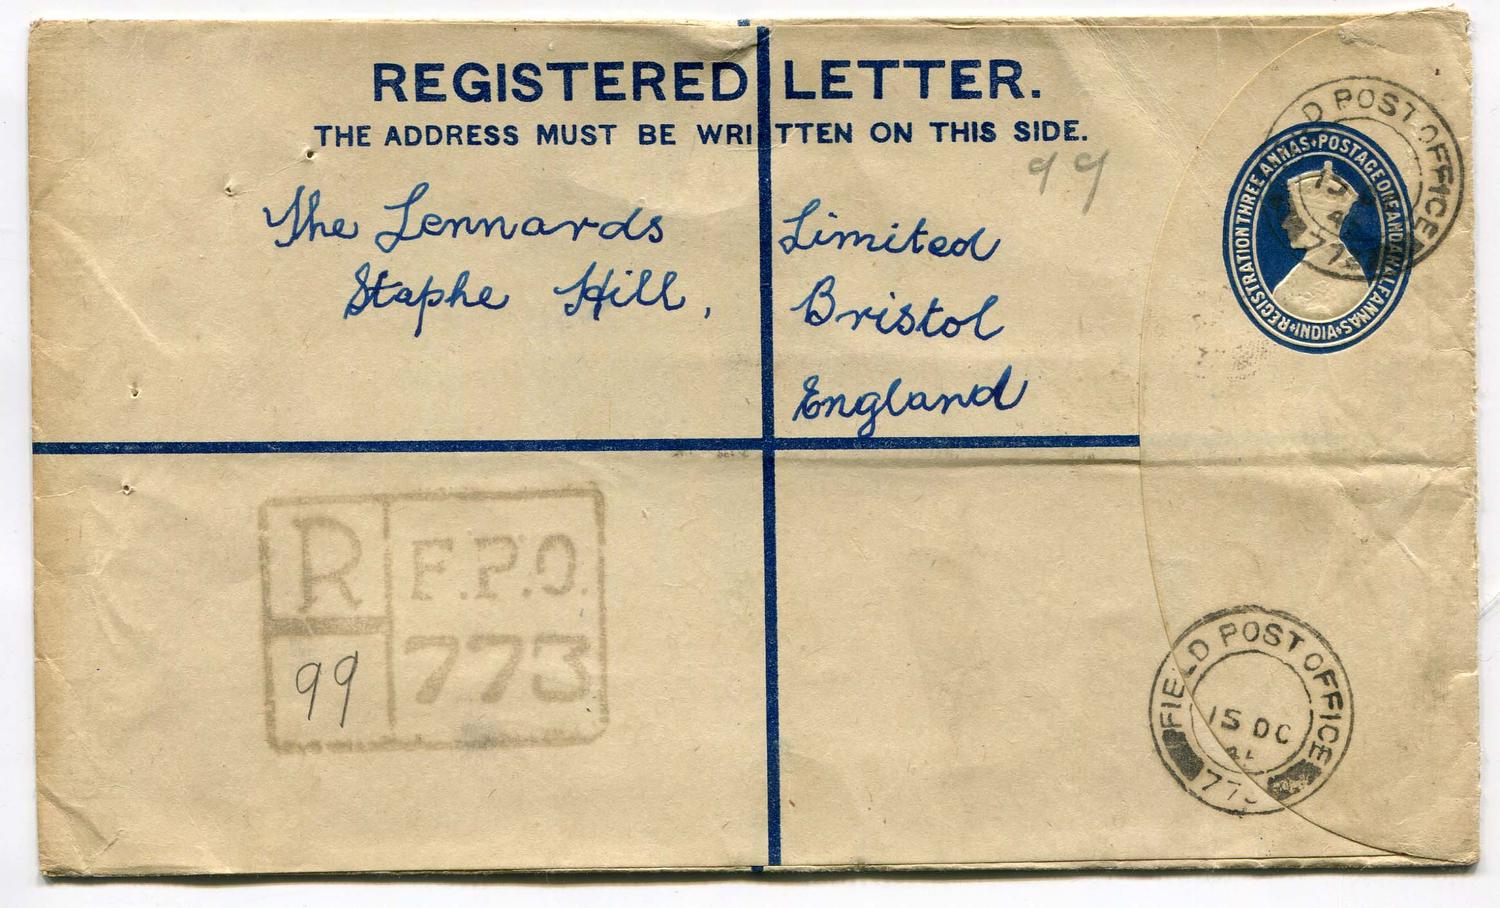 REGISTERED LETTER.
THE ADDRESS MUST BE WRITTEN ON THIS SIDE.
99
The Lennards Limited
Staphe Hill, Bristol
England
REGISTRATION THREE ANNAS + POSTAGE ONE AND A HALF ANNAS + INDIA +
FIELD POST OFFICE
R F.P.O.
99 773
FIELD POST OFFICE
15 DC